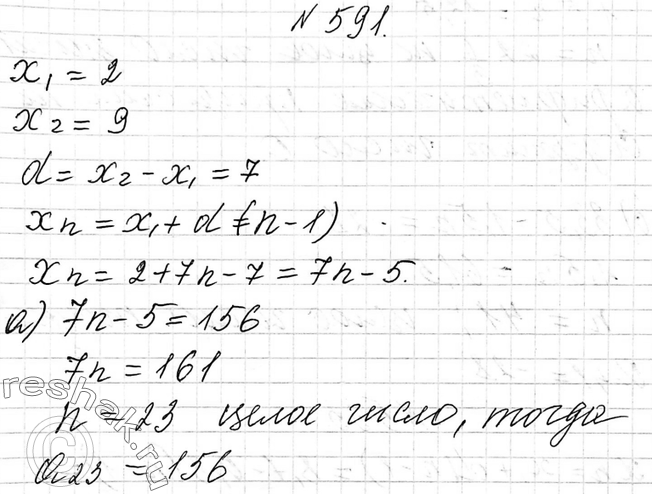 № 591.
x₁ = 2
x₂ = 9
d = x₂ - x₁ = 7
xn = x₁ + d(n-1)
xn = 2+7n-7 = 7n-5.
а) 7n-5 = 156
7n = 161
n = 23 целое число, тогда
a₂₃ = 156
reshak.ru